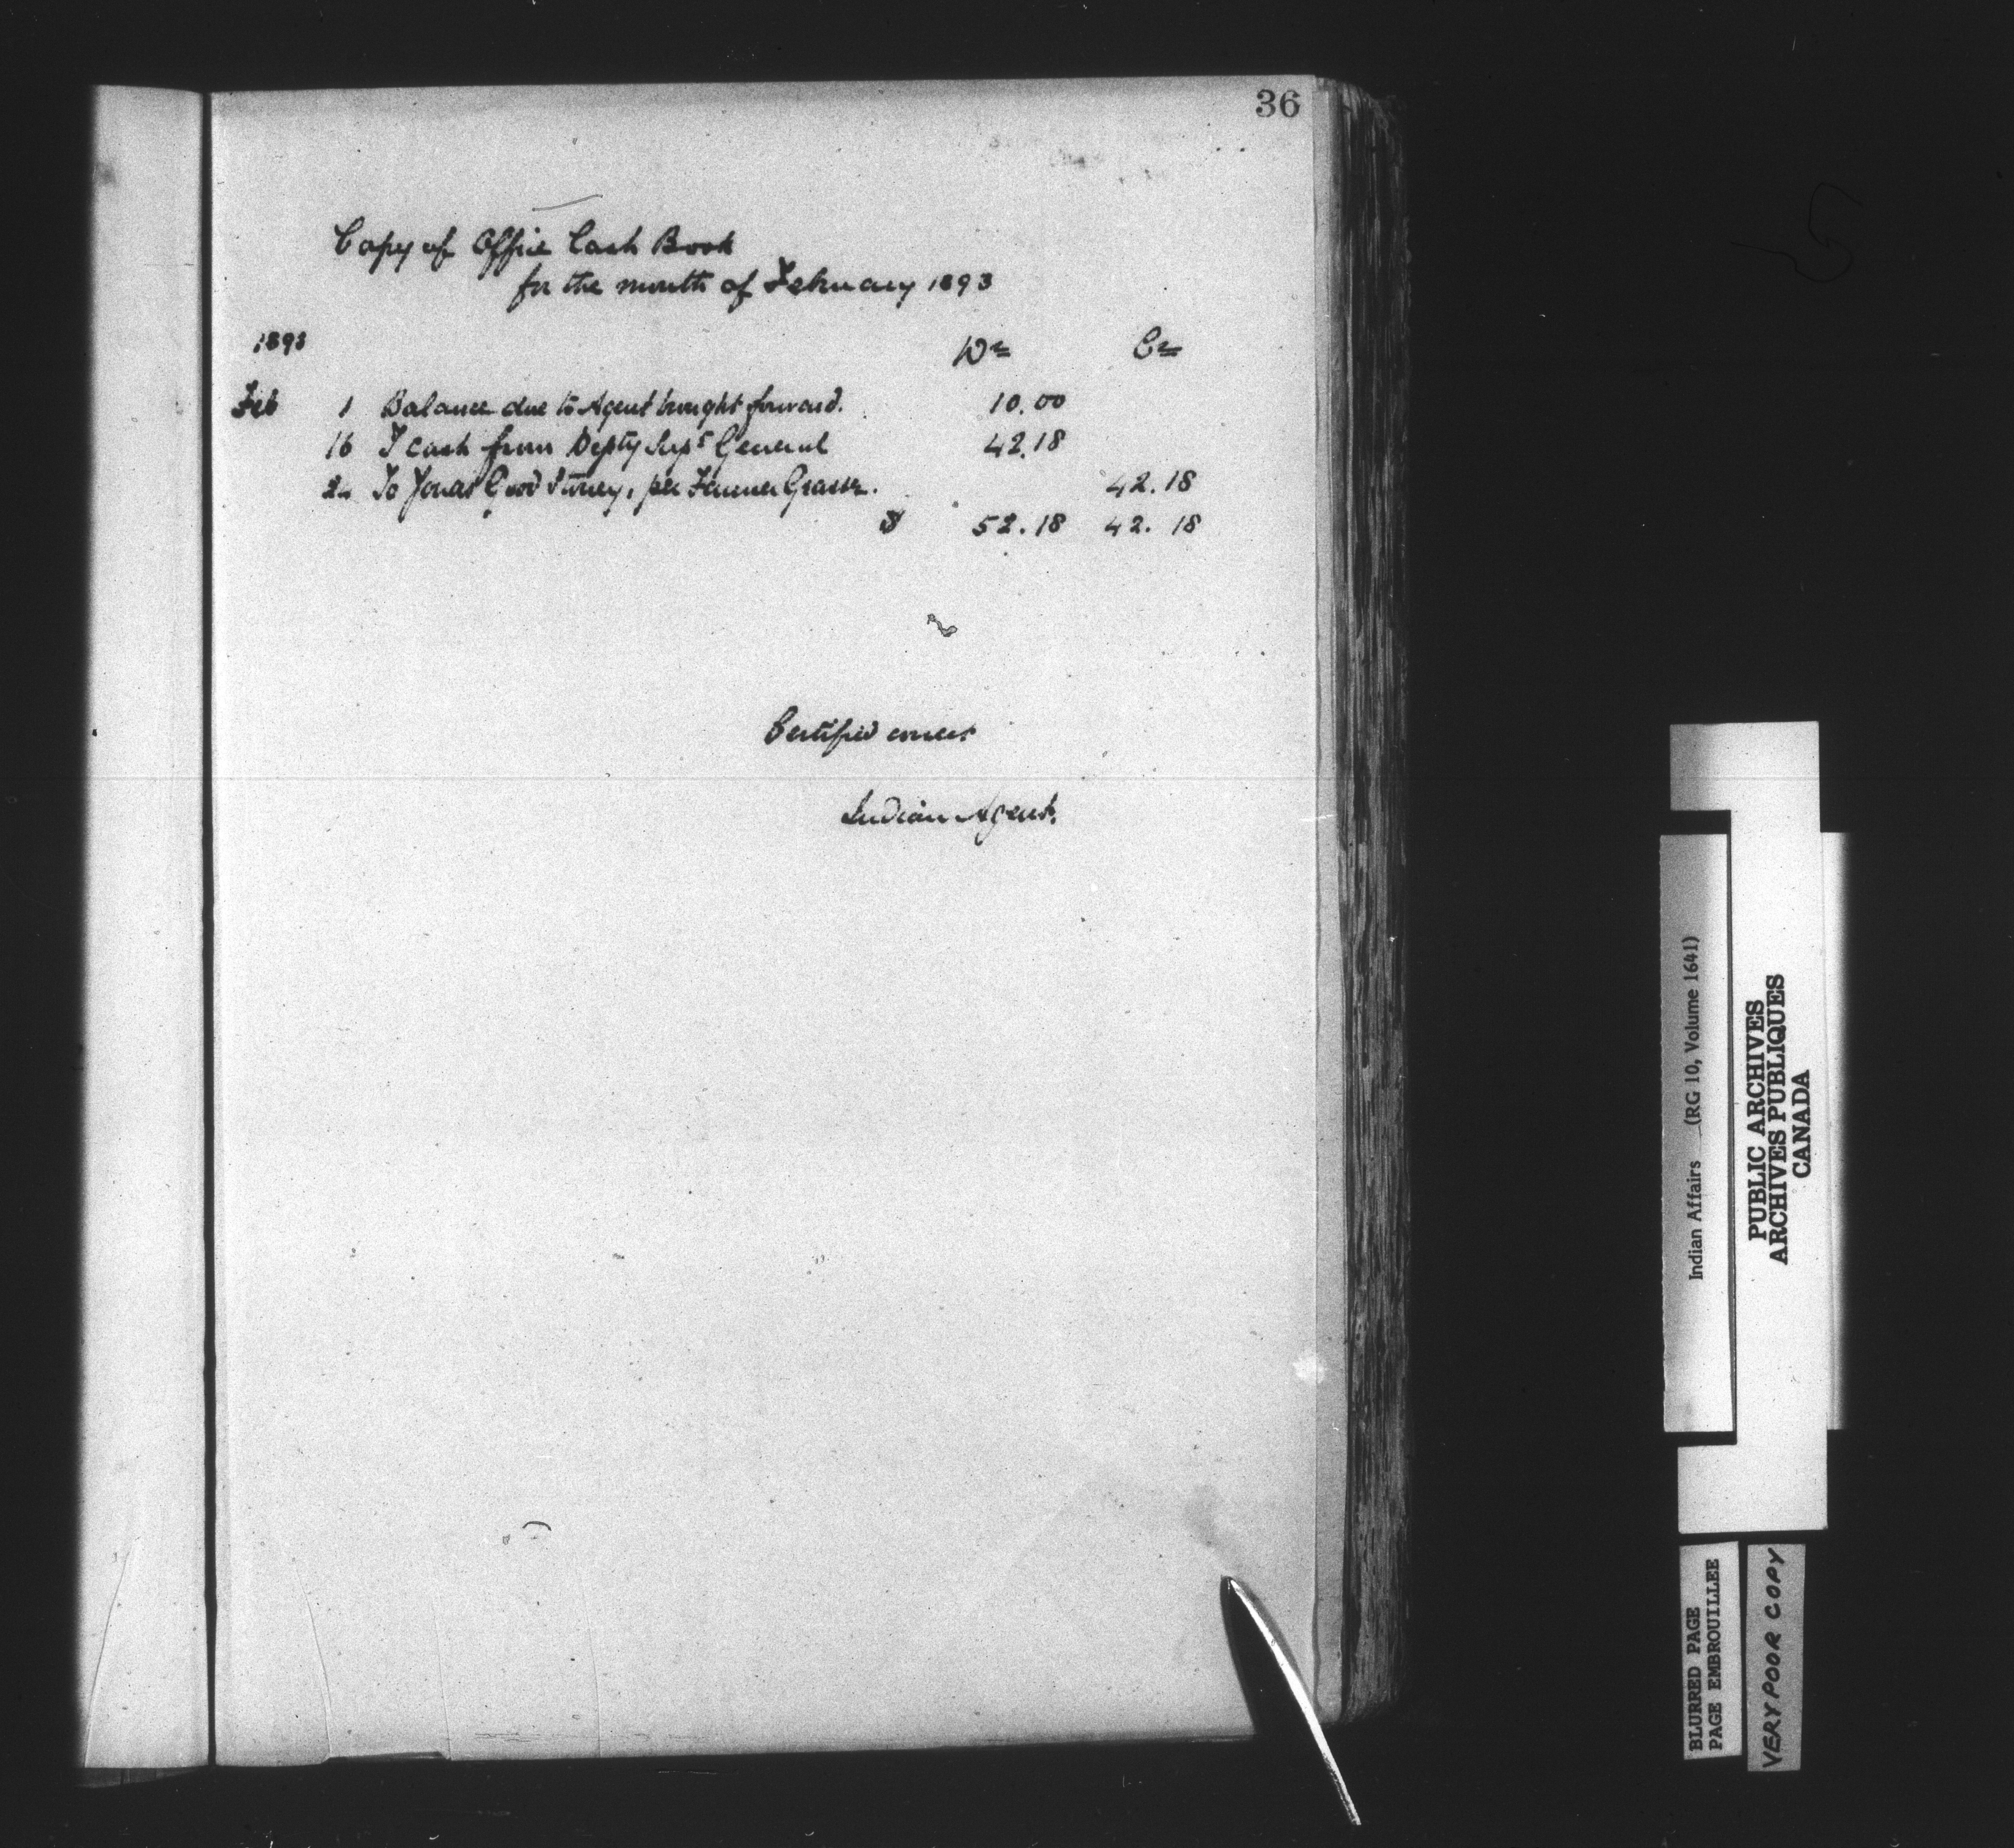 36
Copy of Office Cash Book
for the month of February 1893
1893 Dr Cr
Feb 1 Balance due to Agent brought forward. 10.00
16 To cash from Depty Supt General 42.18
24 To Jonas Good Stoney, per Farmer 42.18
$ 52.18 42.18
Certified correct
Indian Agent.
Indian Affairs (RG 10, Volume 1641)
PUBLIC ARCHIVES
ARCHIVES PUBLIQUES
CANADA
BLURRED PAGE
PAGE EMBROUILLEE
VERY POOR COPY